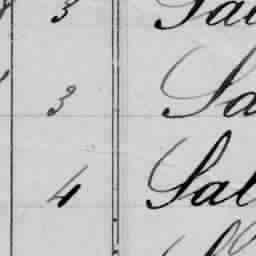 3 Sal
3 Sa
4 Sal